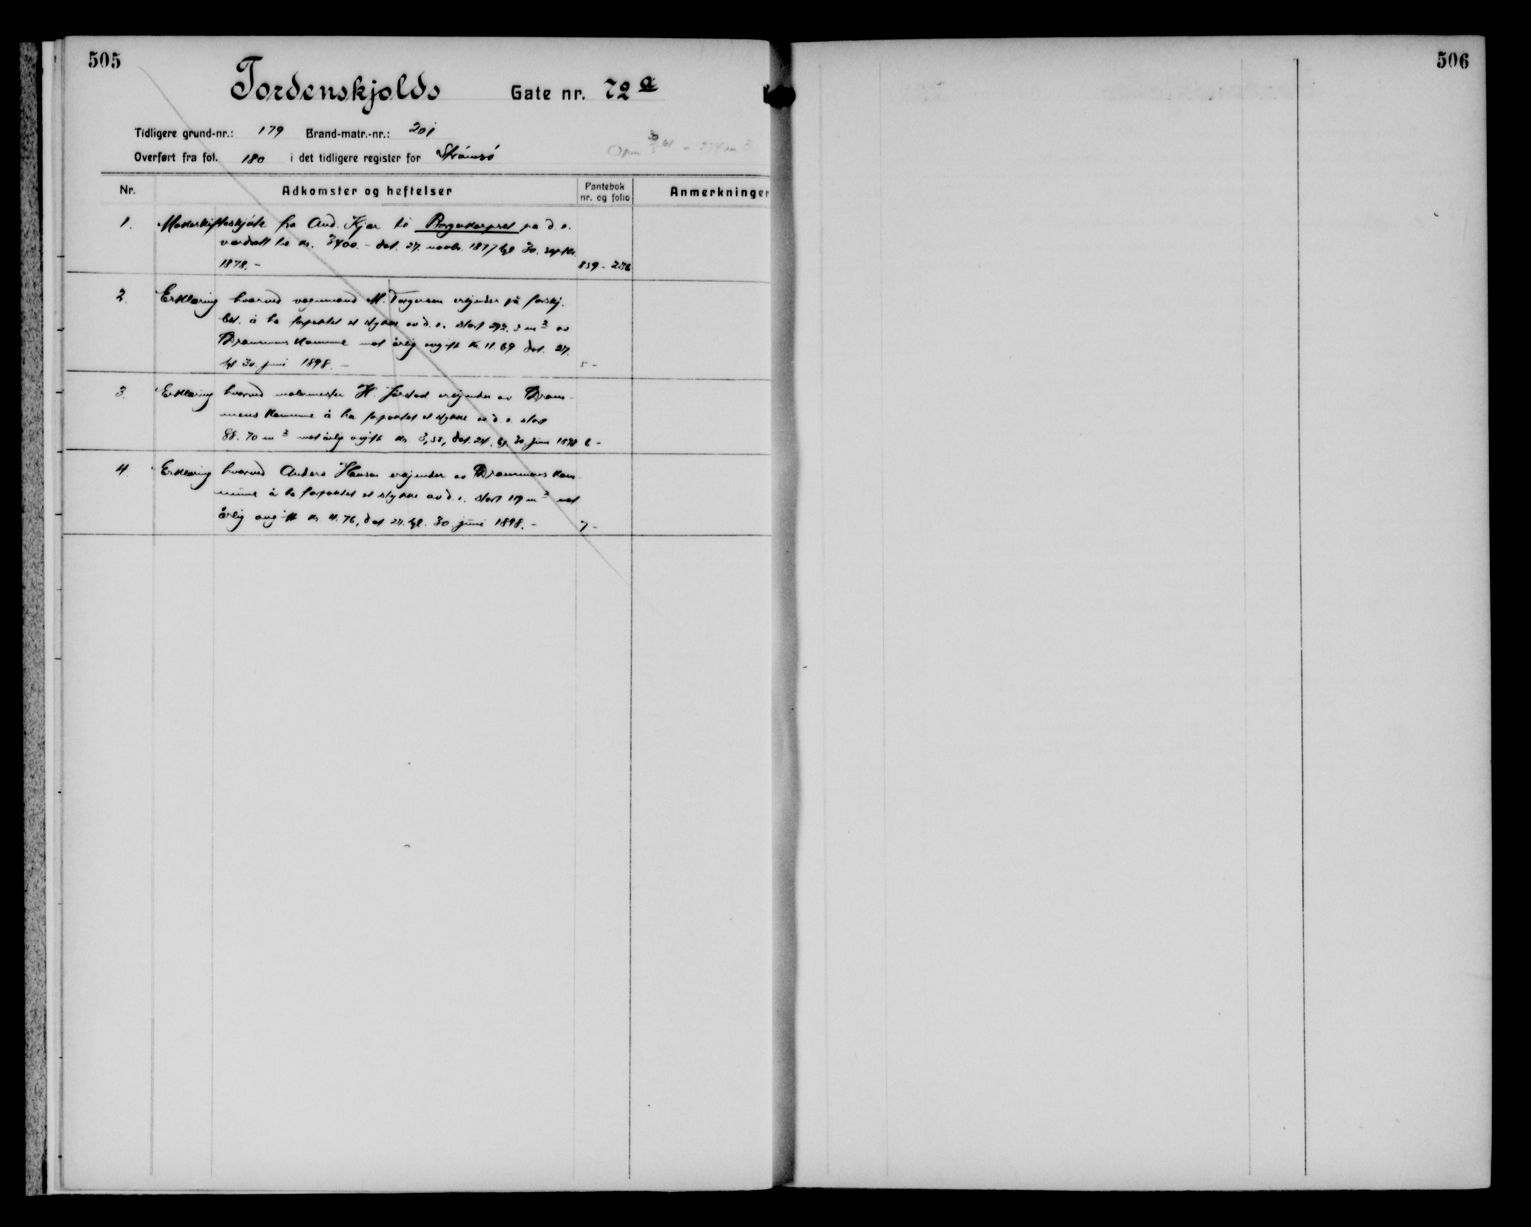 505
506
Tordenskjolds Gate nr. 72 a
Tidligere grund-nr.: 179 Brand-matr.-nr.: 201
Overført fra fol. 180 i det tidligere register for Strømsø
Nr. Adkomster og heftelser Pantebok nr. og folio Anmerkninger
1. Makeskifteskjøte fra And. Kjær til Borgerkorpset på d. e.
verdsatt til kr. 3400.- dat. 27. novbr. 1877 tgl. 30. septbr.
1878.- 859-276
2. Erklæring hvorved vognmand M. Torgersen erkjender på forskj.
bet. å ha forpaktet et stykke av d. e. stort 292.3 m² av
Drammens kommune mot årlig avgift kr. 11.69 dat. 27.
tgl. 30. juni 1898.- 5-
3. Erklæring hvorved malermester H. erkjender av Dram-
mens kommune å ha forpaktet et stykke av d. e. stort
88.70 m² mot årlig avgift kr. 3,55, dat. 24. tgl. 30. juni 1898 6-
4. Erklæring hvorved Anders Hansen erkjender av Drammens kom-
mune å ha forpaktet et stykke av d. e. stort 119 m² mot
årlig avgift kr. 4.76, dat 27. tgl. 30. juni 1898.- 7-